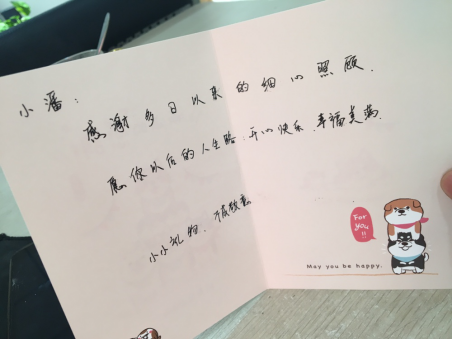 小潘：
感谢多日以来的细心照顾.
愿你以后的人生路.开心快乐.幸福美满.
小小礼物.不成敬意
For you!!
May you be happy.